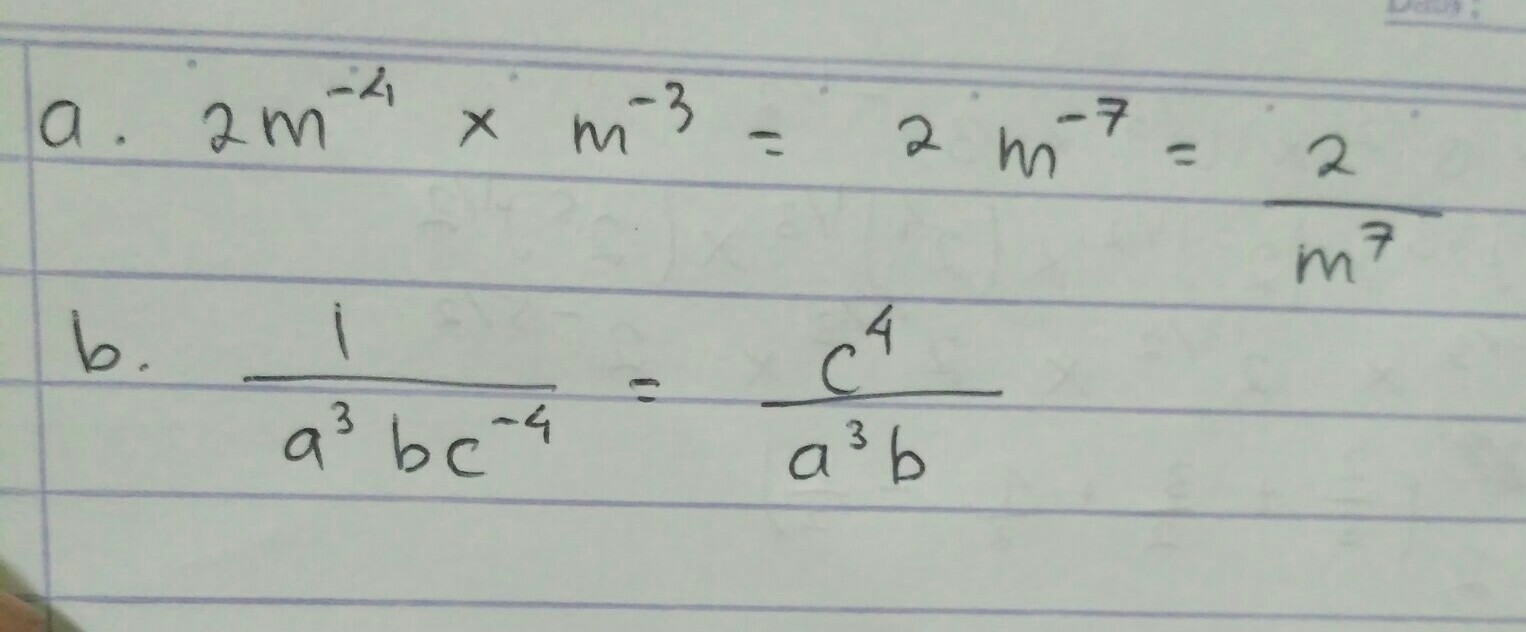 a. 2m⁻⁴ × m⁻³ = 2 m⁻⁷ = 2/m⁷
b. 1/(a³ bc⁻⁴) = c⁴/(a³b)